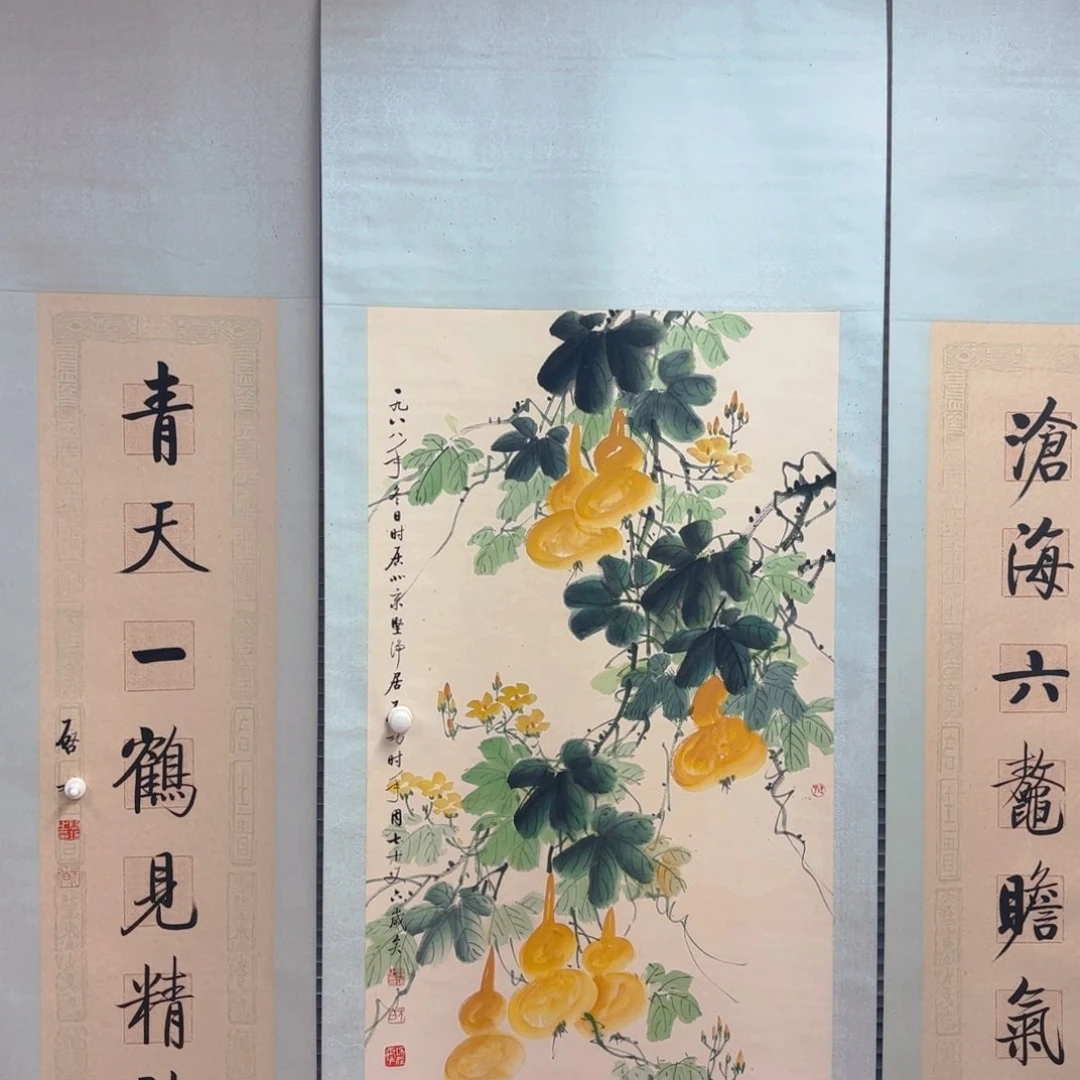 滄海六鼇瞻氣
一九八八年冬日时居北京堅净居
功时年周七十又六歲矣
青天一鶴見精
啓